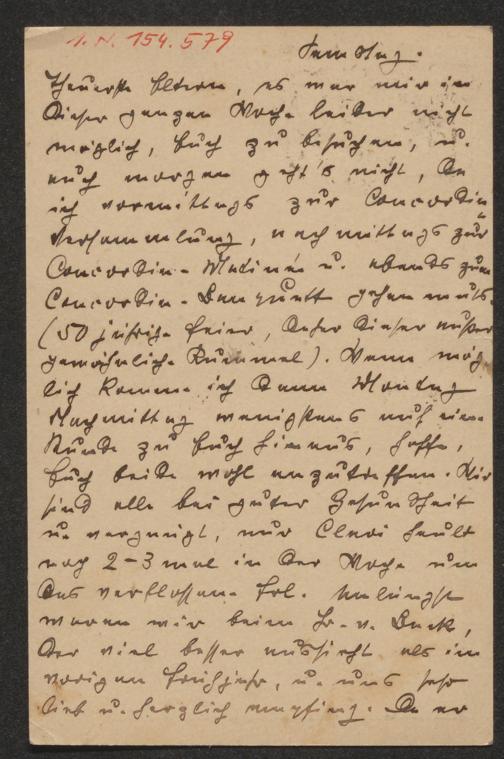 I. N. 154.579
Samstag.
Theuerste Eltern, es war mir in
dieser ganzen Woche leider nicht
möglich, Euch zu besuchen, u.
auch morgen geht's nicht, da
ich vormittags zur Concordia
Versammlung, nachmittags zur
Concordia-Matinée u. abends zum
Concordia-Banquett gehen muss
(50 jährige Feier, daher dieser außer
gewöhnliche Rummel). Wenn mög
lich komme ich dann Montag
Nachmittag wenigstens auf eine
Stunde zu Euch hinaus, hoffe,
Euch beide wohl anzutreffen. Wir
sind alle bei guter Gesundheit
u. vergnügt, nur Cleri heult
noch 2-3 mal in der Woche um
das verflossene Frl. Unlängst
waren wir beim Hr. v.
der viel besser aussieht als im
vorigen Frühjahr, u. uns sehr
lieb u. herzlich empfing. Da er